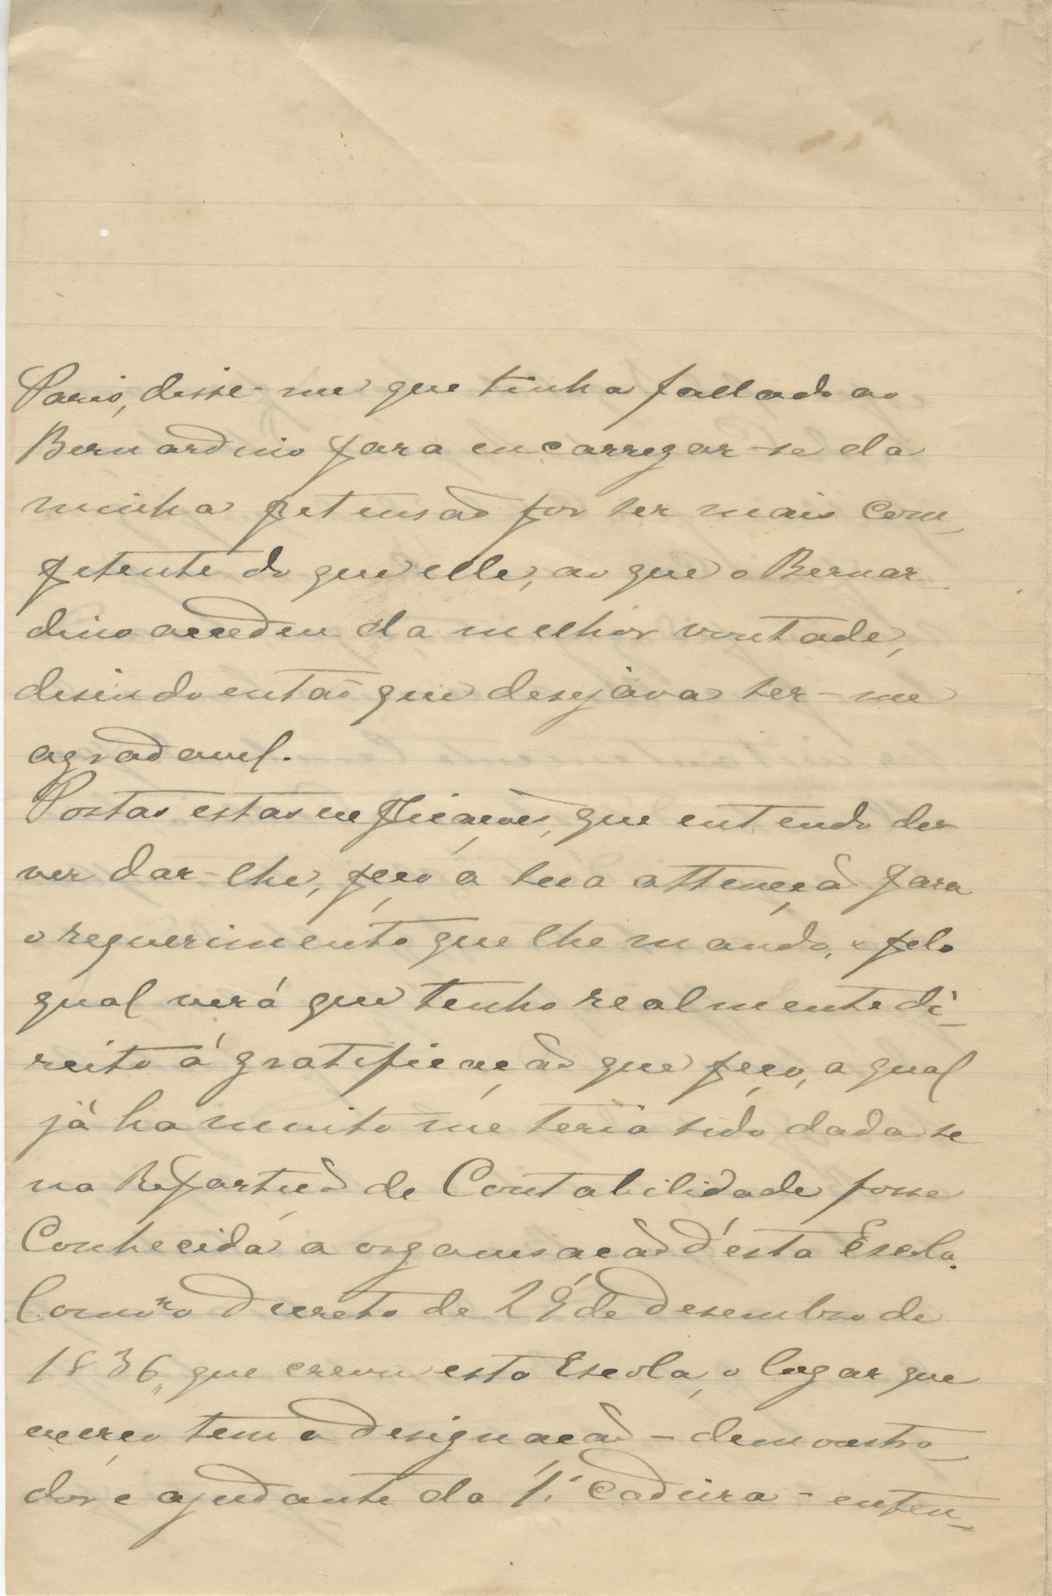 Paris, disse-me que tinha fallado ao
Bernardino para encarregar-se da
minha petensão por ser mais com-
petente do que elle, ao que o Bernar
dino accedeu da melhor vontade,
disindo então que desejava ser-me
agradavel.
Postas estas explicações, que entendo de-
ver dar-lhe, peço a sua attenção para
o requerimento que lhe mando, e pelo
qual verá que tenho realmente di-
reito á gratificação que peço, a qual
já ha muito me teria sido dada se
na Repartição de Contabilidade fosse
Conhecida a organisação d'esta Escola.
Como o Decreto de 29 de Desembro de
1836, que creou esta Escola, o logar que
exerço tem a designação - demonstra-
dor e ajudante da 1ª Cadeira - enten-